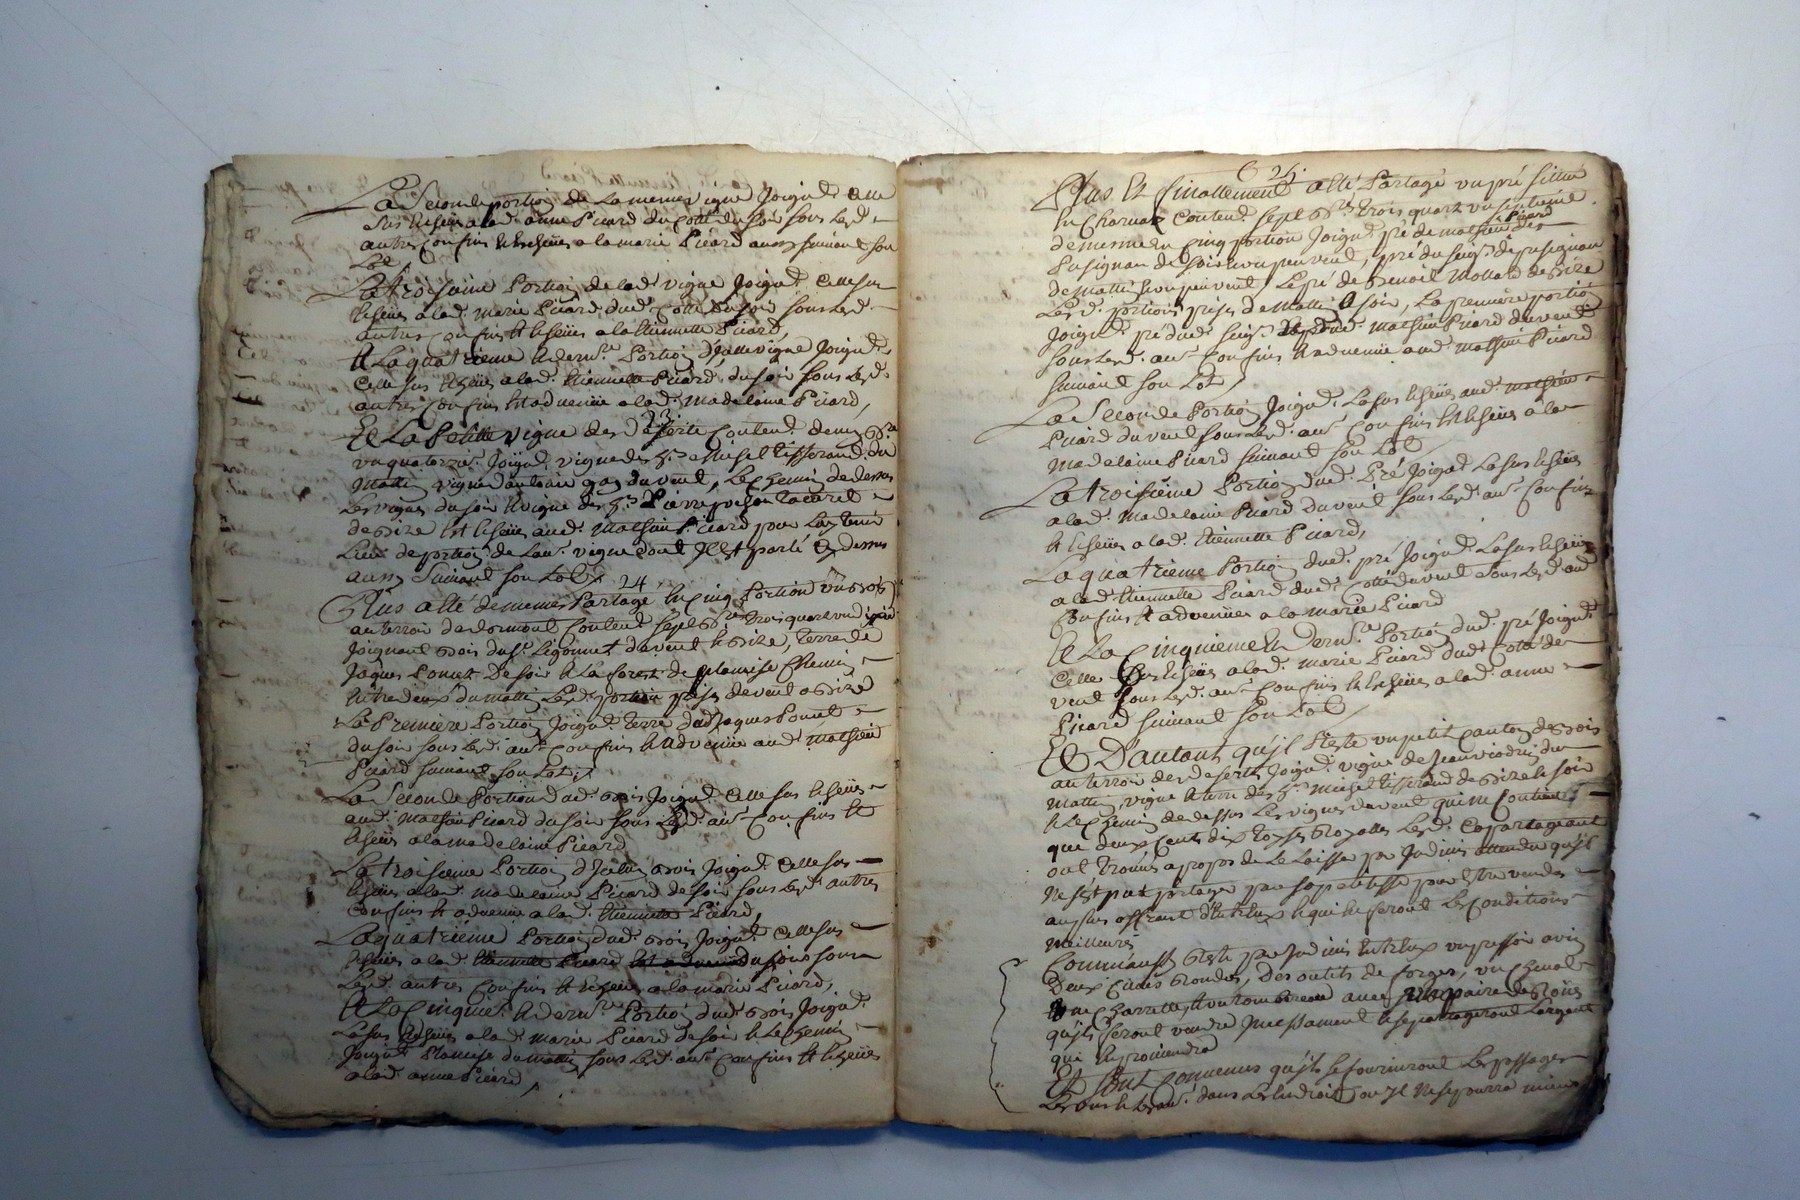 La Seconde portion de La mesme vigne Joignd. Celle
Sus Escheüe a lad. anne Picard du Cotté du soir sous Lesd.
autres Confins Et Escheüe a la marie Picard aussy suivant son
Lot
La troisieme Portion de lad. vigne Joignd. Celle sus
Escheüe a lad. Marie Picard dud. Cotté du soir sous Lesd.
autres Confins Et Escheüe a la Etiennette Picard,
Et La quatrieme & dernre. Portion d'Jcelle vigne Joignd.
Celle sus Escheüe a lad. Etiennette Picard, du soir sous Lesd.
autres Confins Et advenüe a lad. Madelaine Picard,
23.
Et La Petitte vigne des deserts Contend. deux
un quatorzie. Joignd. vigne de Sr. Michel tisserand du
Matin vigne d'antoine gay du vent, Le Chemin de dessus
Les vignes du soir & vigne de Sr. Pierre
de Bize Est Escheüe aud. Mathieu Picard pour Luy tenir
Lieu de portion de La vigne dont Jl Est parlé Cy dessus
aussy Suivant son Lot
24
Plus a Eté de mesme Partagé En Cinq Portions un Bois
au terroir de dormont Contend. Sept trois quart
Joignant Bois du Sr. Ligonnet du vent & Bize, terre de
Jaques Ponnet De soir & La forest de planaise Chemin
Entre deux du matin, Lesd. portions prises de vent a Bize
La Premiere Portion Joignd. terre dud. Jaques Ponnet
du soir sous Lesd. autr. Confins & advenüe aud. Mathieu
Picard suivant son Lot,
La Seconde Portion dud. Bois Joignd. Celle sus Escheüe
aud. Mathieu Picard du soir sous Lesd. autr. Confins Et
Escheüe a la madelaine Picard
La troisieme Portion d'Jcelluy Bois Joignd. Celle sus
Escheüe a lad. Madelaine Picard de soir sous Lesd. autres
Confins Et advenüe a lad. Etiennette Picard,
La quatrieme Portion dud. Bois Joignd. Celle sus
Escheüe a lad. Etiennette Picard du soir sous
Lesd. autres Confins Et Escheüe a la marie Picard,
Et La Cinquie. & dernre. Portion dud. Bois Joignd.
La sus Escheüe a lad. Marie Picard de soir & Le Chemin
Joignt. Planaise du matin sous Lesd. autr. Confins Et Escheüe
a lad. anne Picard,
25.
Plus Et finallement a Eté Partagé un pré Situé
En Charnaz Contend. Sept trois quart un
de mesme En Cinq portions Joignd. pré de mathieu
Picard
Pusignan de Soir Un peu vent, pré du Seigr. de pusignan
de Matin Un peu vent, Le pré de Benoit Mollard de Bize
Lesd. portions prises de Matin a soir, La premiere portion
Joignd. pré dud. Seigr. Mathieu Picard du vent
sous Lesd. autr. Confins & advenüe aud. Mathieu Picard
suivant son Lot,
La Seconde Portion Joignd. La sus Escheüe aud. Mathieu
Picard du vent sous Lesd. autr. Confins Et Escheüe a la
Madelaine Picard suivant son Lot
La troisiême Portion dud. Pré Joignd. La sus Escheüe
a lad. Madelaine Picard du vent sous Lesd. autr. Confins
Et Escheüe a lad. Etiennette Picard,
La quatrieme Portion dud. pré Joignd. La sus Escheüe
a lad. Etiennette Picard dud. Cotté du vent sous Lesd. autr.
Confins Et advenüe a la marie Picard
Et La Cinquieme Et Dernre. Portion dud. pré Joignd.
Celle Sus Escheüe a lad. marie Picard dud. Cotté de
vent sous Lesd. autr. Confins Et Escheüe a lad. anne
Picard suivant son Lot
Et D'autant qu'jl Reste un petit Canton de Bois
au terroir des deserts Joignd. vigne de Jean du
Matin, vigne & terre de Sr. Michel tisserand de Bize & soir
& Le Chemin de dessus Les vignes du vent qui ne Contient
que deux Cents dix toyses Royalles Lesd. Copartageant
ont trouvés a propos de Le Laisser par Jndivis attendu qu'jl
Ne s'Est put partager par sa petitesse pour Etre vendu
au plus offrant d'Entreux & qui En feront Les Conditions
Meilleures
Comm'aussy Reste par Jndivis Entreux un pressoir avec
Deux Cuves Rondes, Des outils de forges, un Cheval
Une Charrette, & un tombereau avec une paire de Roües
qu'jls feront vendre Jncessament & se partageront L'argent
qui En proviendra
Et sont Convenus qu'jls se fourniront Les passages
Les uns & Les autr. dans Les Endroits ou Jl Ne se pourra mieux